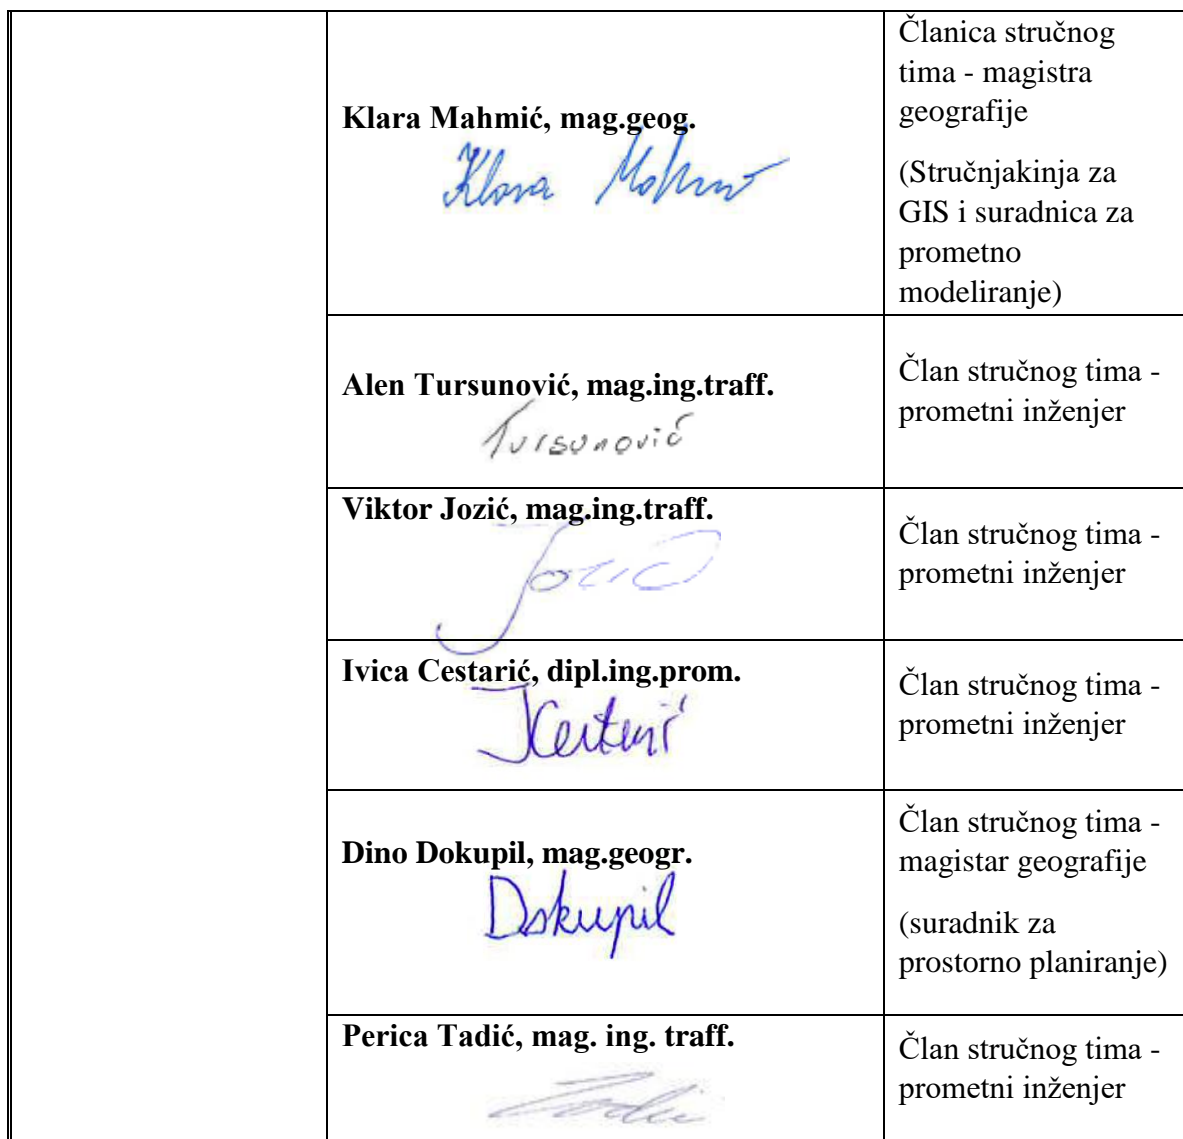 Klara Mahmić, mag.geog.
Klara Mahmić
Članica stručnog
tima - magistra
geografije
(Stručnjakinja za
GIS i suradnica za
prometno
modeliranje)
Alen Tursunović, mag.ing.traff.
Tursunović
Član stručnog tima -
prometni inženjer
Viktor Jozić, mag.ing.traff.
Jozić
Član stručnog tima -
prometni inženjer
Ivica Cestarić, dipl.ing.prom.
ICestarić
Član stručnog tima -
prometni inženjer
Dino Dokupil, mag.geogr.
Dokupil
Član stručnog tima -
magistar geografije
(suradnik za
prostorno planiranje)
Perica Tadić, mag. ing. traff.
Tadić
Član stručnog tima -
prometni inženjer